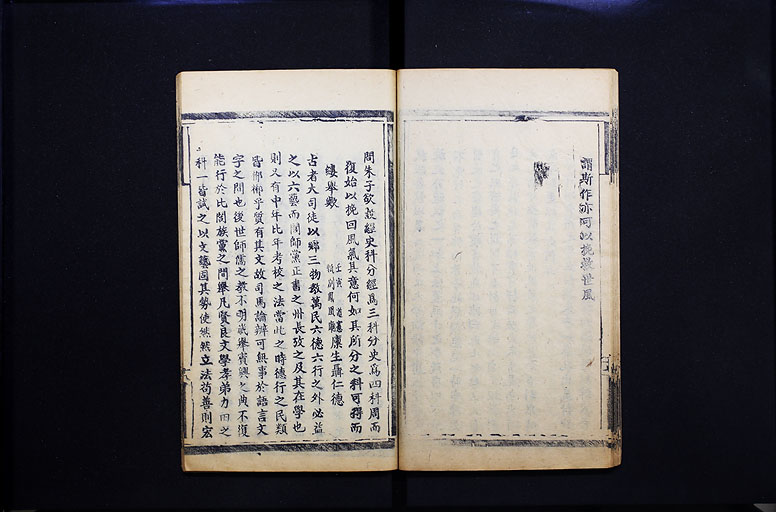 謂斯作亦可以挽救世風
問朱子欲設經史科分經爲三科分史爲四科周而
復始以挽回風氣其意何如其所分之科可得而
縷舉歟
康生聶仁德
古者大司徒以鄉三物教萬民六德六行之外必益
之以六藝而閭師黨正書之州長攷之及其在學也
則又有中年比年考校之法當此之時德行之民類
皆彬彬乎質有其文故司馬論辨可無事於語言文
字之間也後世師儒之教不明歲舉賓興之典不復
能行於比閭族黨之間舉凡賢良文學孝弟力田之
科一皆試之以文藝固其勢使然然立法苟善則宏